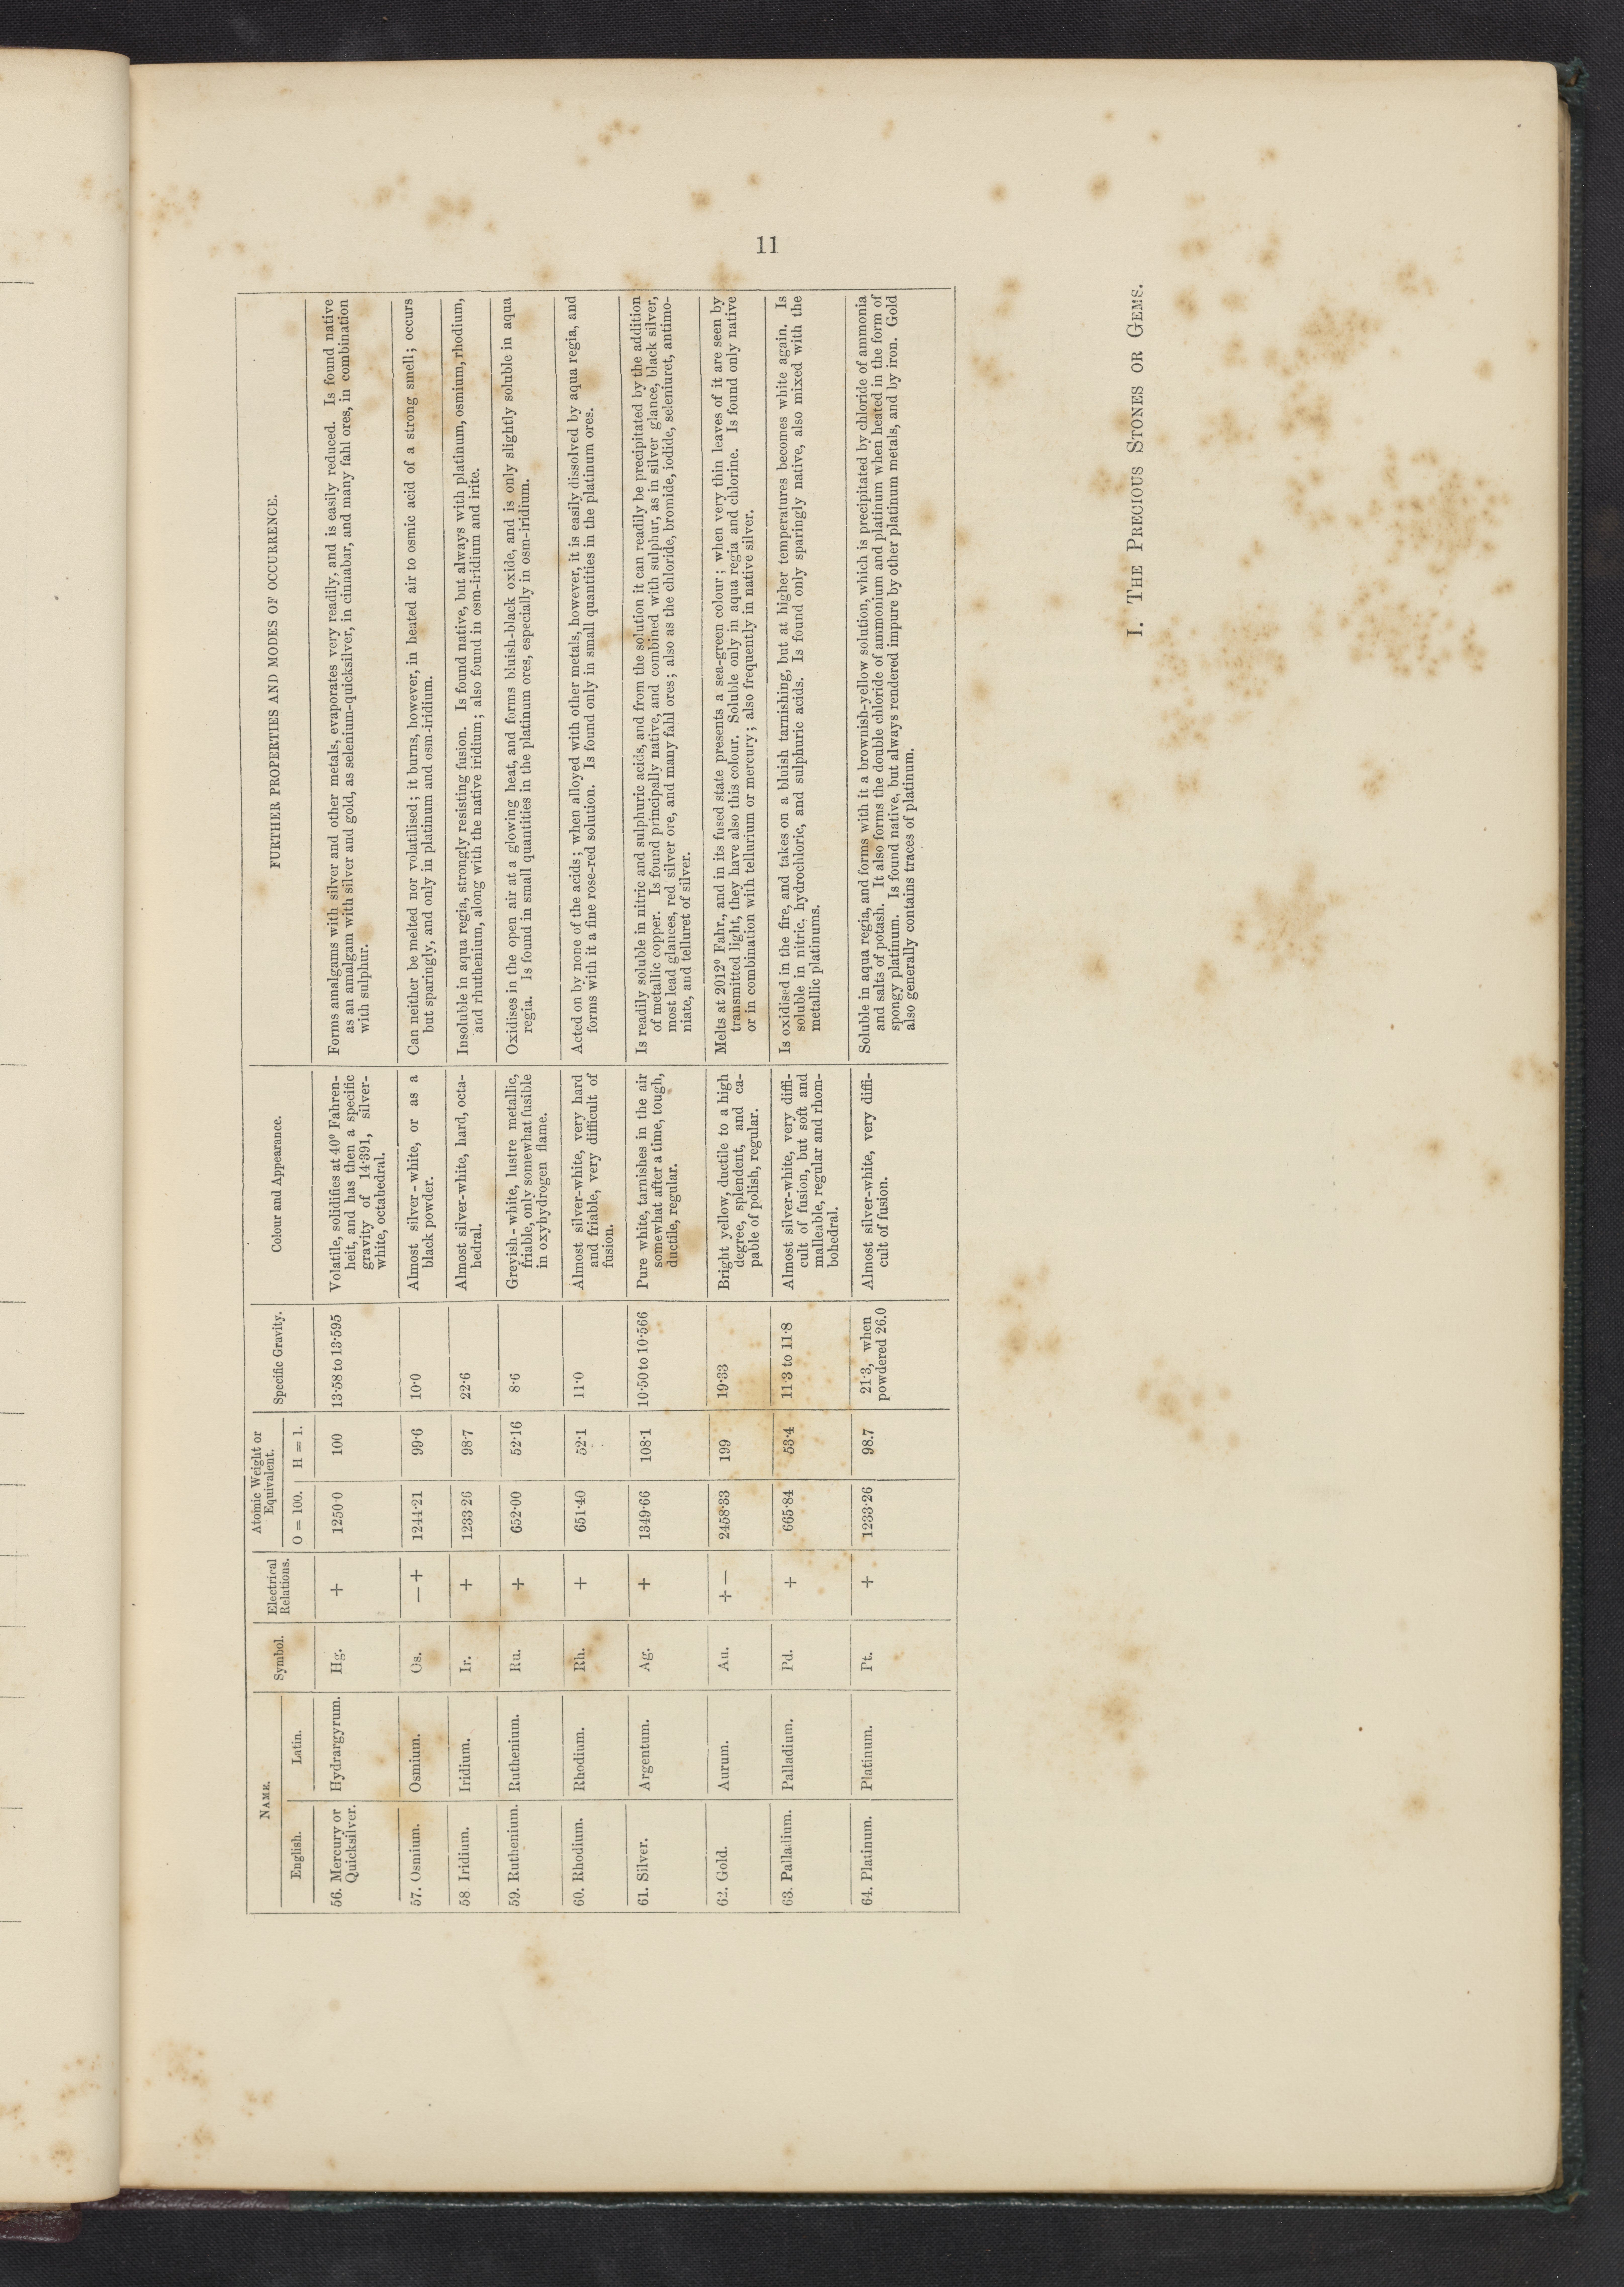 11
NAME.
English.
Latin.
Symbol.
Electrical
Relations.
Atomic Weight or
Equivalent.
O = 100.
H = 1.
Specific Gravity.
Colour and Appearance.
FURTHER PROPERTIES AND MODES OF OCCURRENCE.
56. Mercury or
Quicksilver.
Hydrargyrum.
Hg.
+
1250·0
100
13·58 to 13·595
Volatile, solidifies at 40º Fahren-
heit, and has then a specific
gravity of 14·391, silver-
white, octahedral.
Forms amalgams with silver and other metals, evaporates very readily, and is easily reduced. Is found native
as an amalgam with silver and gold, as selenium-quicksilver, in cinnabar, and many fahl ores, in combination
with sulphur.
57. Osmium.
Osmium.
Os.
— +
1244·21
99·6
10·0
Almost silver-white, or as a
black powder.
Can neither be melted nor volatilised; it burns, however, in heated air to osmic acid of a strong smell; occurs
but sparingly, and only in platinum and osm-iridium.
58 Iridium.
Iridium.
Ir.
+
1233·26
98·7
22·6
Almost silver-white, hard, octa-
hedral.
Insoluble in aqua regia, strongly resisting fusion. Is found native, but always with platinum, osmium, rhodium,
and rhuthenium, along with the native iridium; also found in osm-iridium and irite.
59. Ruthenium.
Ruthenium.
Ru.
+
652·00
52·16
8·6
Greyish-white, lustre metallic,
friable, only somewhat fusible
in oxyhydrogen flame.
Oxidises in the open air at a glowing heat, and forms bluish-black oxide, and is only slightly soluble in aqua
regia. Is found in small quantities in the platinum ores, especially in osm-iridium.
60. Rhodium.
Rhodium.
Rh.
+
651·40
52·1
11·0
Almost silver-white, very hard
and friable, very difficult of
fusion.
Acted on by none of the acids; when alloyed with other metals, however, it is easily dissolved by aqua regia, and
forms with it a fine rose-red solution. Is found only in small quantities in the platinum ores.
61. Silver.
Argentum.
Ag.
+
1349·66
108·1
10·50 to 10·566
Pure white, tarnishes in the air
somewhat after a time, tough,
ductile, regular.
Is readily soluble in nitric and sulphuric acids, and from the solution it can readily be precipitated by the addition
of metallic copper. Is found principally native, and combined with sulphur, as in silver glance, black silver,
most lead glances, red silver ore, and many fahl ores; also as the chloride, bromide, iodide, seleniuret, antimo-
niate, and telluret of silver.
62. Gold.
Aurum.
Au.
+ —
2458·33
199
19·33
Bright yellow, ductile to a high
degree, splendent, and ca-
pable of polish, regular.
Melts at 2012º Fahr., and in its fused state presents a sea-green colour; when very thin leaves of it are seen by
transmitted light, they have also this colour. Soluble only in aqua regia and chlorine. Is found only native
or in combination with tellurium or mercury; also frequently in native silver.
63. Palladium.
Palladium.
Pd.
+
665·84
53·4
11·3 to 11·8
Almost silver-white, very diffi-
cult of fusion, but soft and
malleable, regular and rhom-
bohedral.
Is oxidised in the fire, and takes on a bluish tarnishing, but at higher temperatures becomes white again. Is
soluble in nitric, hydrochloric, and sulphuric acids. Is found only sparingly native, also mixed with the
metallic platinums.
64. Platinum.
Platinum.
Pt.
+
1233·26
98.7
21·3, when
powdered 26.0
Almost silver-white, very diffi-
cult of fusion.
Soluble in aqua regia, and forms with it a brownish-yellow solution, which is precipitated by chloride of ammonia
and salts of potash. It also forms the double chloride of ammonium and platinum when heated in the form of
spongy platinum. Is found native, but always rendered impure by other platinum metals, and by iron. Gold
also generally contains traces of platinum.
I. THE PRECIOUS STONES OR GEMS.